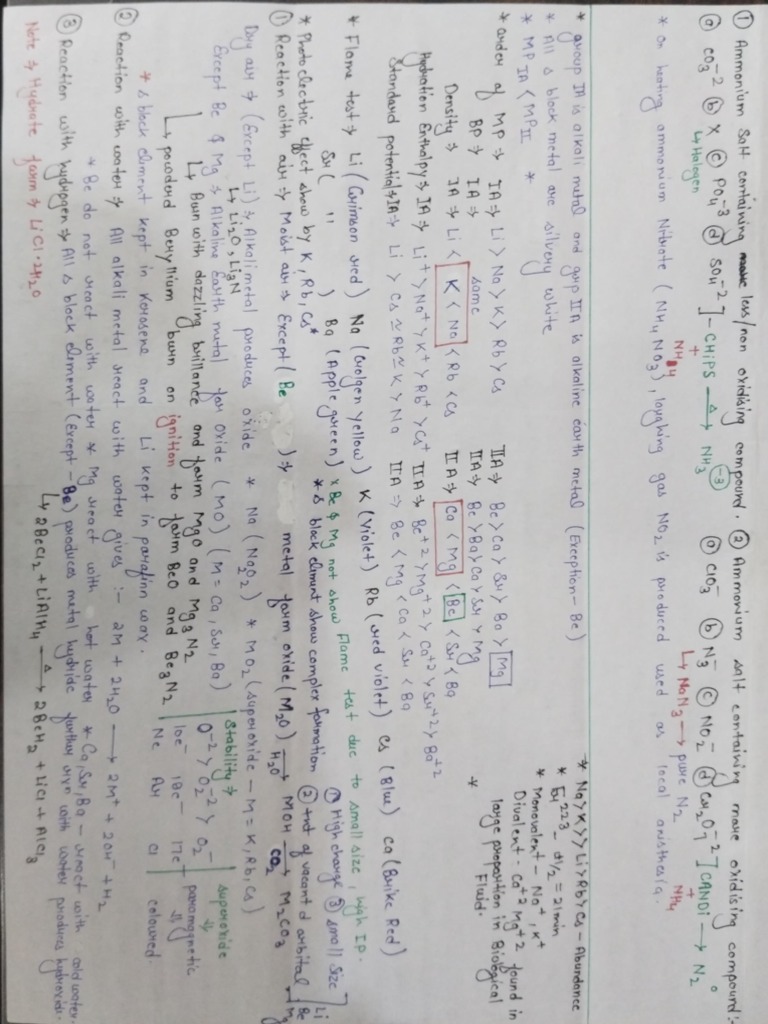 ① Ammonium Salt containing less/non oxidising compound. ② Ammonium salt containing more oxidising compound:
ⓐ CO3-2 ⓑ X ⓒ PO4-3 ⓓ SO4-2] - CHiPS →Δ NH3 (-3) ⓐ ClO3- ⓑ N3- ⓒ NO2- ⓓ Cr2O7-2] CANDi → N2 °
↳ Halogen + NH4 ↳ NaN3 → pure N2 + NH4
* On heating ammonium Nitrate (NH4NO3), laughing gas NO2 is produced used as local anisthesia.
* group IA is alkali metal and grp IIA is alkaline earth metal (Exception - Be)
* All s block metal are silvery white
* MP IA < MP II *
* order of MP ⇒ IA ⇒ Li > Na > K > Rb > Cs IIA ⇒ Be > Ca > Sr > Ba > Mg
BP ⇒ IA ⇒ same IIA ⇒ Be > Ba > Ca > Sr > Mg
Density ⇒ IA ⇒ Li < K < Na < Rb < Cs IIA ⇒ Ca < Mg < Be < Sr < Ba
Hydration Enthalpy ⇒ IA ⇒ Li+ > Na+ > K+ > Rb+ > Cs+ IIA ⇒ Be+2 > Mg+2 > Ca+2 > Sr+2 > Ba+2
Standard potential ⇒ IA ⇒ Li > Cs ≅ Rb ≅ K > Na IIA ⇒ Be < Mg < Ca < Sr < Ba
* Na > K >> Li > Rb > Cs - Abundance
* Fr 223 - t1/2 = 21min
* Monovalent - Na+, K+
Divalent - Ca+2 Mg+2 found in
large proportion in Biological
Fluid.
*
* Flame test ⇒ Li (Crimson red) Na (Golgen yellow) K (Violet) Rb (red violet) Cs (Blue) Ca (Brike Red)
Sr ( " ) Ba (Apple green) * Be & Mg not show Flame test due to small size, high IP.
* Photo electric effect show by K, Rb, Cs* * s block elment show complex formation ① High charge ③ small size
② tnt of vacant d orbital Li Be Mg
① Reaction with air ⇒ Moist air ⇒ Except (Be ) ⇒ metal form oxide (M2O) →H2O MOH →CO2 M2CO3
Dry air ⇒ (Except Li) ⇒ Alkali metal produces oxide * Na (Na2O2) * MO2 (superoxide - M = K, Rb, Cs)
↳ Li2O, Li3N
Except Be & Mg ⇒ Alkaline Earth metal for oxide (MO) (M = Ca, Sr, Ba)
↳ Burn with dazzling brillance and form MgO and Mg3N2
↳ powderd Beryllium burn on ignition to form BeO and Be3N2
Stability ⇒ superoxide
O-2 > O2-2 > O2- ⇓
10e- 18e- 17e- paramagnetic
Ne Ar Cl coloured.
* s block elment kept in Kerosene and Li kept in parafin wax.
② Reaction with water ⇒ All alkali metal react with water gives :- 2M + 2H2O → 2M+ + 2OH- + H2
* Be do not react with water * Mg react with hot water * Ca, Sr, Ba - react with cold water.
③ Reaction with hydrogen ⇒ All s block element (Except - Be) produces metal hydride further rxn with water produces hydroxide.
↳ 2BeCl2 + LiAlH4 →Δ 2BeH2 + LiCl + AlCl3
Note ⇒ Hydrate form ⇒ LiCl·2H2O